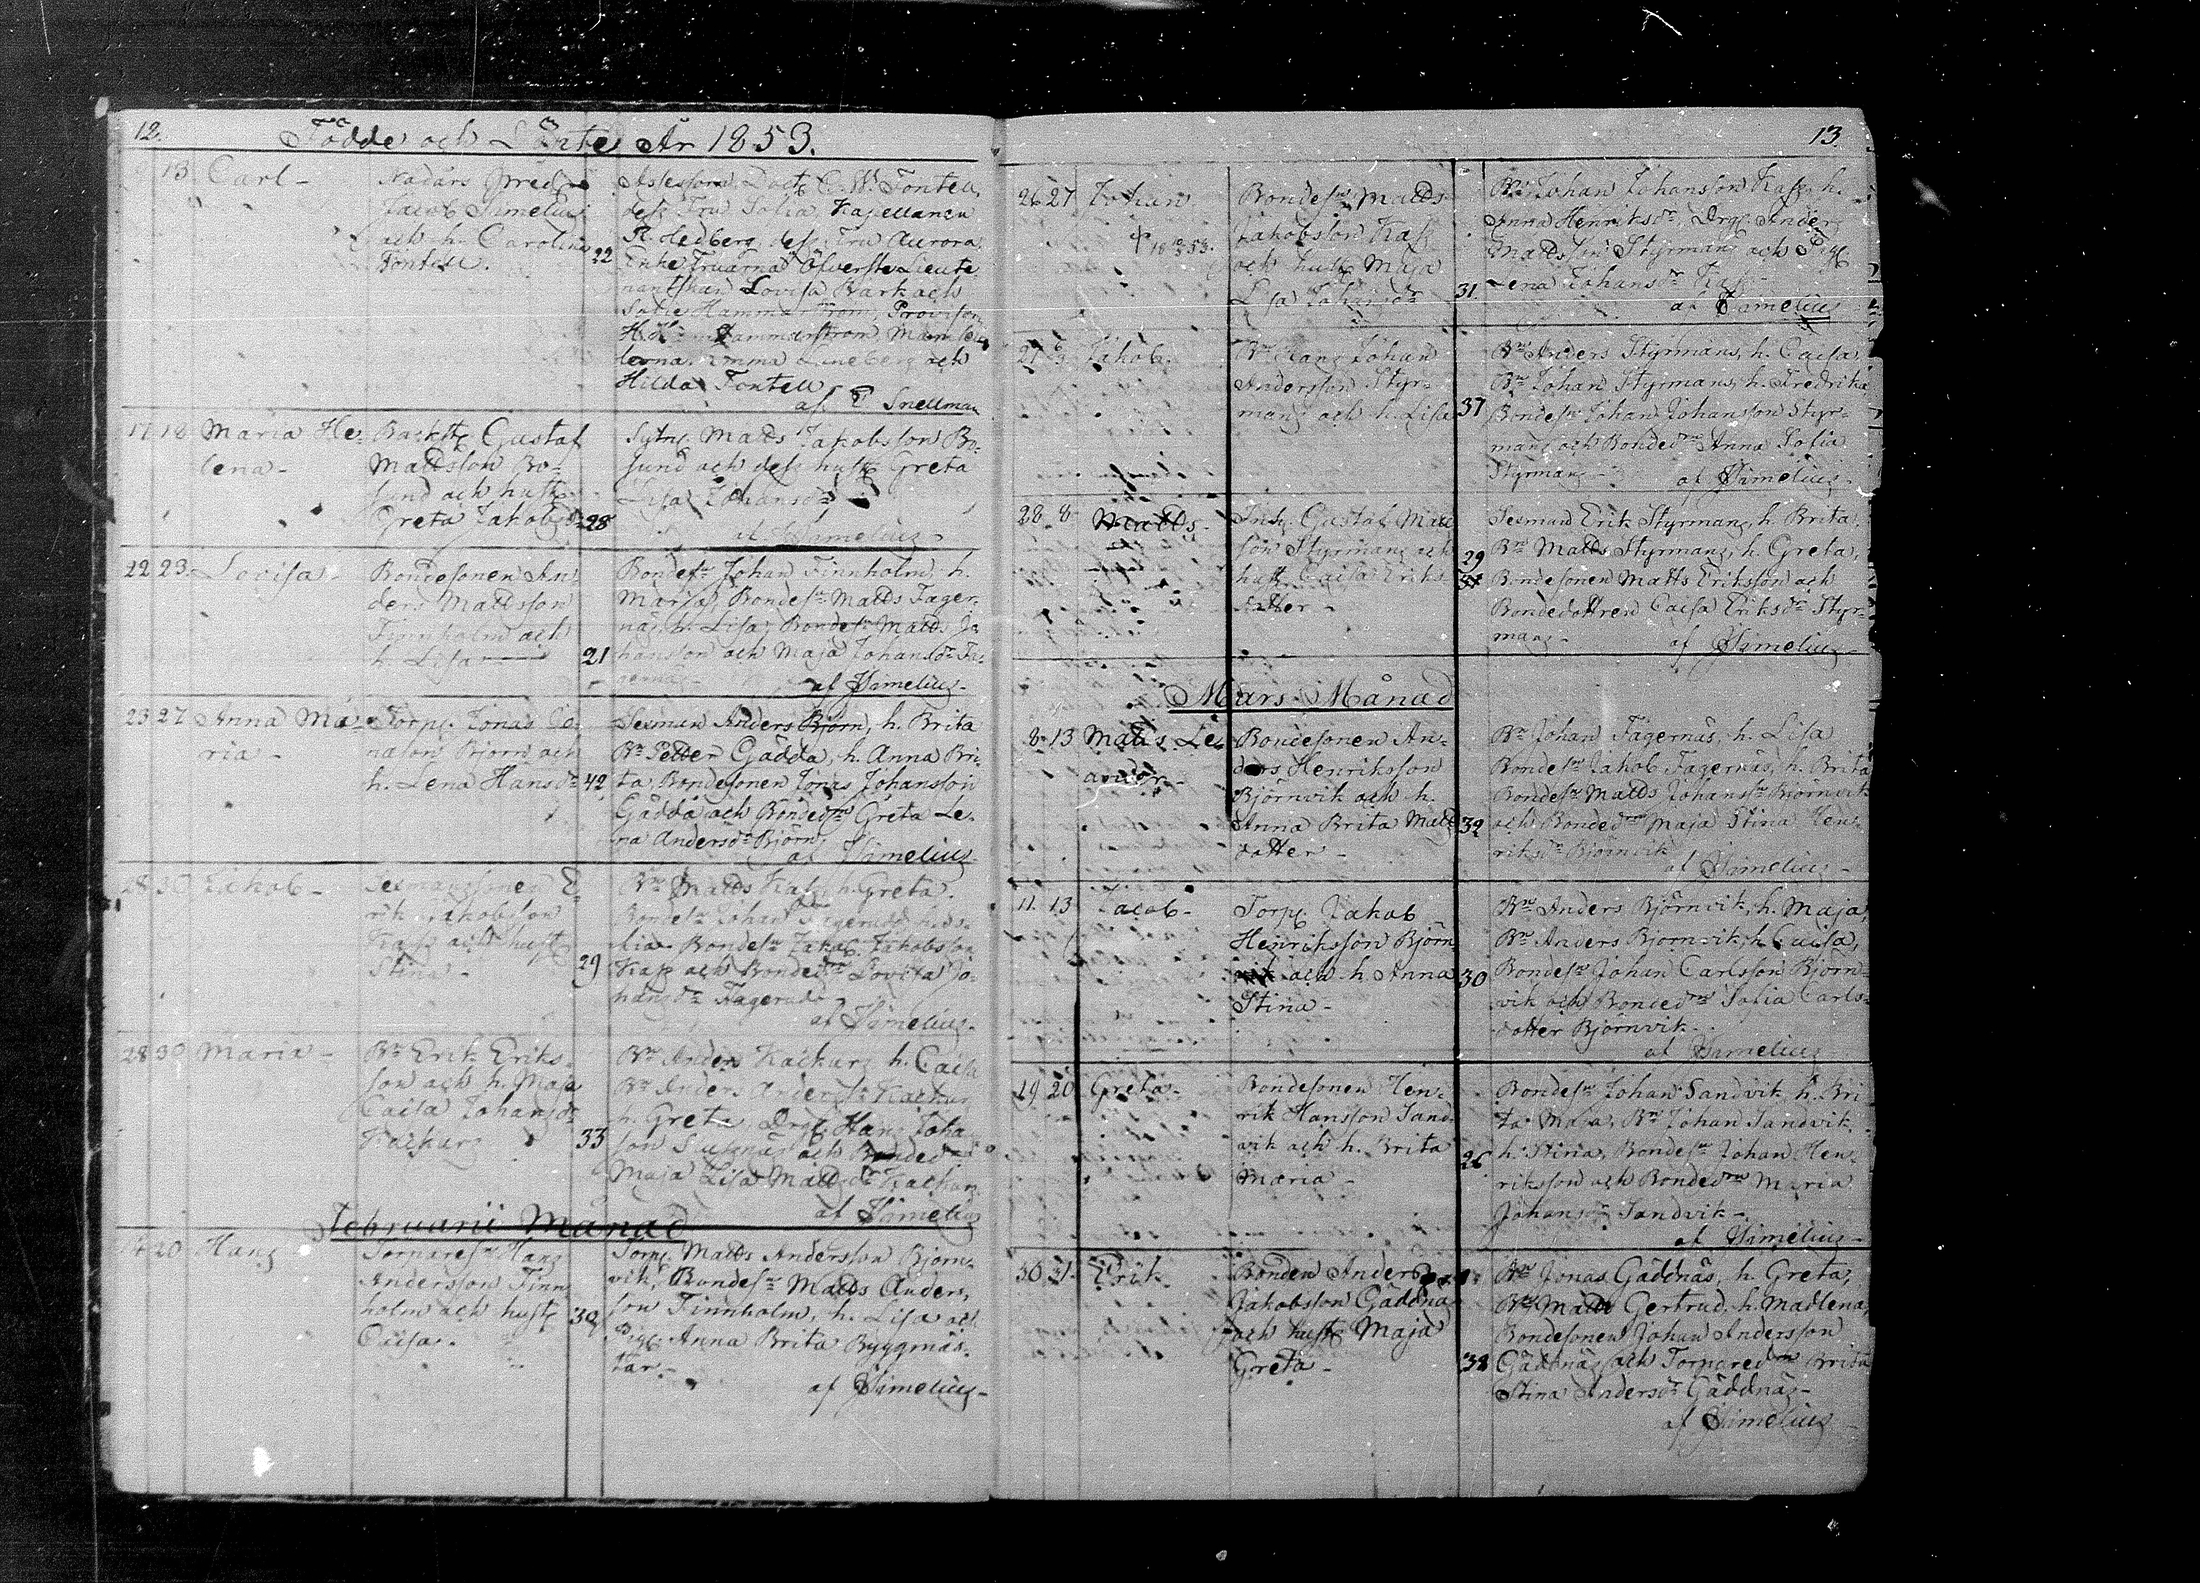 12.
Födde och Döpte År 1853.
13 Carl -
Nadårs Pred.
Jacob Simelius
och h. Carolina
Fontell.
22
Assessoren, Doct. C. W. Fontell,
dess Fru Sofia, Kapellanen
R. Hedberg, dess Fru Aurora,
Enke Fruarna Öfverste Lieute
nantskan Lovisa Bark och
Sofie Hammarström, Provisorn
Hammarström, Mamsel-
lerna Emma Lineberg och
Hilda Fontell
af E Snellman
17 18 Maria He-
lena -
Backst. Gustaf
Mattsson Bo-
sund och hust.
Greta Jakobsdr
28
Sytng. Matts Jakobsson Bo-
sund och dess hust. Greta
Lisa Johansdr
af Simelius
22 23 Lovisa
Bondesonen An-
ders Mattsson
Finnholm och
h. Lisa
21
Bondesn Johan Finnholm, h.
Marja, Bondesn Matts Fager-
näs, h. Lisa, Bondesn Matts Jo-
hansson och Maja Johansdr Fa-
gernäs -
af Simelius -
23 27 Anna Ma-
ria -
Torp. Jonas Jo-
nasson Björn och
h. Lena Hansdr
42
Sexman Anders Björn, h. Brita
Bn Petter Gädda, h. Anna Bri-
ta Bondesonen Jonas Johansson
Gädda och Bondedn Greta Le-
na Andersdr Björn,
af Simelius
28 30 Jakob -
Sexmanssonen E-
rik Jakobsson
Kass och hust
Stina -
29
Bn Matts Kass, h. Greta.
Bondesn Johan Fagerudd, h.
Bondesn Jakob Jakobsson
Kass och Bondedn Lovisa Jo-
hansdr Fagerudd
af Simelius.
28 30 Maria -
Bn Erik Eriks-
son och h. Maja
Caisa Johansdr
Kackurs
33
Bn Anders Kackurs h. Caisa
Bn Anders Andersn Kackurs
h. Greta, Drg. Hans Joha
son och Bonded
Maja Lisa Mattsdr Kackurs
af Simelius
Februarii Månad
14 20 Hans
Torparesn Hans
Andersson Finn
holm och hust
Caisa.
39
Torp. Matts Andersson Björn-
vik, Bondesn Matts Anders-
son Finnholm, h. Lisa och
Pig. Anna Brita Byggmäs-
tar.
af Simelius -
13.
26 27 Johan
Bondesn Matts
Jakobsson Kass
och hust Maja
Lisa Johansdr
31
Bn Johan Johansson Kass, h.
Anna Henriksdr, Drg. Anders
Mattsson Styrmans och Pig.
Lena Johansdr Kass
af Simelius
Jakob.
Bn Hans Johan
Andersson Styr-
mans och h. Lisa
37
Bn Anders Styrmans, h. Caisa,
Bn Johan Styrmans, h. Fredrika,
Bondesn Johan Johansson Styr-
mans och Bondedn Anna Sofia
Styrmans -
af Simelius
28 8 Matts -
Inh. Gustaf Matts
son Styrmans och
hust Caisa Eriks
dotter -
29
Sexman Erik Styrmans, h. Brita,
Bn Matts Styrmans, h. Greta,
Bondesonen Matts Eriksson och
Bondedottren Caisa Eriksdr Styr-
mans -
af Simelius
Mars Månad
8 13 Matts Le-
ander -
Bondesonen An-
ders Henriksson
Björnvik och h.
Anna Brita Matts
dotter -
32
Bn Johan Fagernäs, h. Lisa
Bondesn Jakob Fagernäs, h. Brita
Bondesn Matts Johanssn Björnvik
och Bondedn Maja Stina Hen-
riksdr Björnvik
af Simelius -
11. 13 Jacob -
Torp. Jakob
Henriksson Björn-
vik och h. Anna
Stina -
30
Bn Anders Björnvik, h. Maja,
Bn Anders Björnvik, h. Caisa,
Bondesn Johan Carlsson Björn-
vik och Bondedn Sofia Carls-
dotter Björnvik -
af Simelius
19 20 Greta -
Bondesonen Hen-
rik Hansson Sand-
vik och h. Brita
Maria -
26
Bondesn Johan Sandvik, h. Bri-
ta Maja, Bn Johan Sandvik,
h. Stina, Bondesn Johan Hen-
riksson och Bondedn Maria
Johansdr Sandvik -
af Simelius -
30 31 Erik
Bonden Anders
Jakobsson Gäddnäs
och hust Maja
Greta -
32
Bn Jonas Gäddnäs, h. Greta,
Bn Matts Gertrud, h. Madlena,
Bondesonen Johan Andersson
Gäddnäs och Torparedn Brita
Stina Andersdr Gäddnäs -
af Simelius